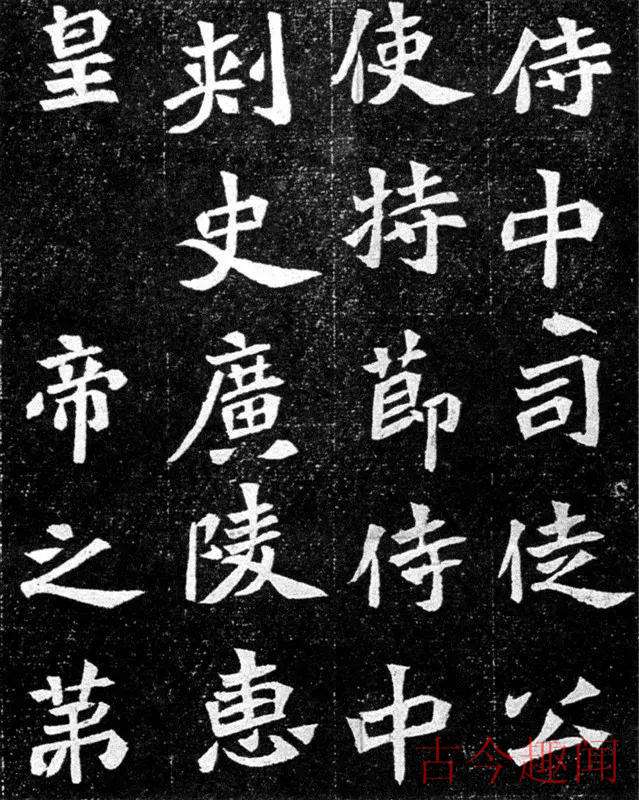 侍中司徒公
使持節侍中
刺史廣陵惠
皇帝之第
古今趣闻